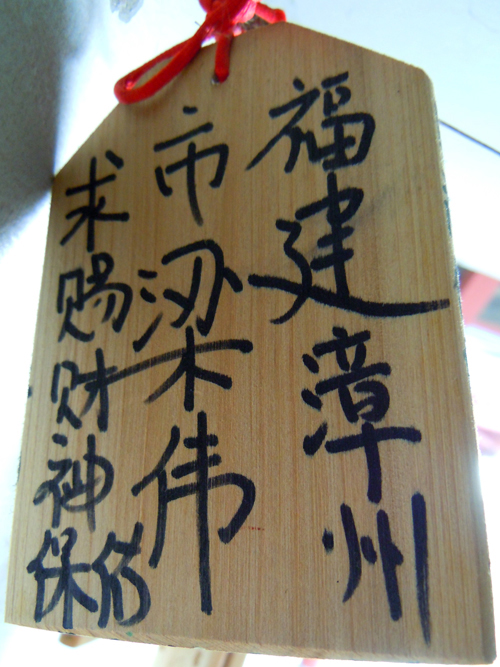 福建漳州
市梁伟
求赐财神保佑